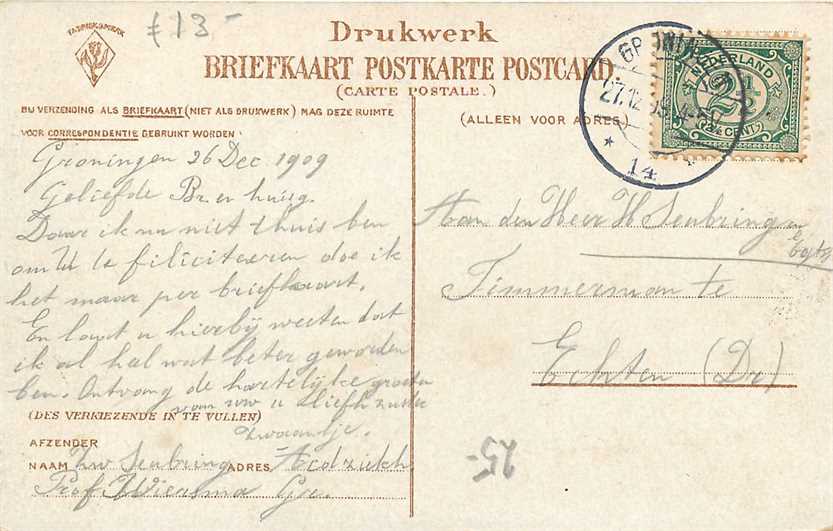 £ 13-
FABRIEKSMERK
Drukwerk
BRIEFKAART POSTKARTE POSTCARD
(CARTE POSTALE.)
BIJ VERZENDING ALS BRIEFKAART (NIET ALS DRUKWERK) MAG DEZE RUIMTE
VOOR CORRESPONDENTIE GEBRUIKT WORDEN
(ALLEEN VOOR ADRES)
NEDERLAND
2½
(2½ CENT)
14
Groningen 26 Dec. 1909
Geliefde Br. en huisg.
Daar ik nu niet thuis ben
om U te filiciteeren doe ik
het maar per briefkaart.
En laat u hierbij weeten dat
ik al hal wat beter geworden
ben. Ontvang de hartelijke groeten
van uw u liefh zuster
Zwaantje.
Aan den Heer H Seubring en
Timmerman te
Echten (Dr)
(DES VERKIEZENDE IN TE VULLEN)
AFZENDER
NAAM Zw Seubring ADRES
Prof Wiersma Gr.
25-